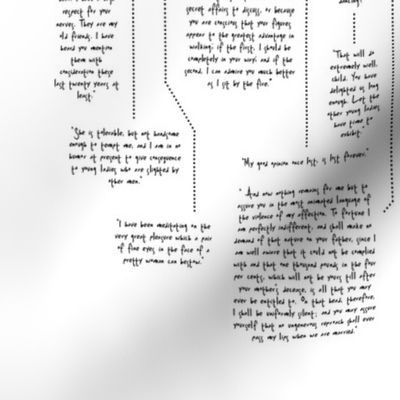 respect for your
nerves. They are my
old friends. I have
heard you mention
them with
consideration these
last twenty years at
least."
secret affairs to discuss, or because
you are conscious that your figures
appear to the greatest advantage in
walking; if the first, I should be
completely in your way; and if the
second, I can admire you much better
as I sit by the fire."
dancing!
"That will do
extremely well,
child. You have
delighted us long
enough. Let the
other young ladies
have time to
exhibit."
"She is tolerable, but not handsome
enough to tempt me, and I am in no
humor at present to give consequence
to young ladies who are slighted by
other men."
"My good opinion once lost, is lost forever."
"I have been meditating on the
very great pleasure which a pair
of fine eyes in the face of a
pretty woman can bestow."
"And now nothing remains for me but to
assure you in the most animated language of
the violence of my affection. To fortune I
am perfectly indifferent, and shall make no
demand of that nature on your father, since I
am well aware that it could not be complied
with; and that one thousand pounds in the four
per cents, which will not be yours till after
your mother's decease, is all that you may
ever be entitled to. On that head, therefore,
I shall be uniformly silent; and you may assure
yourself that no ungenerous reproach shall ever
pass my lips when we are married."